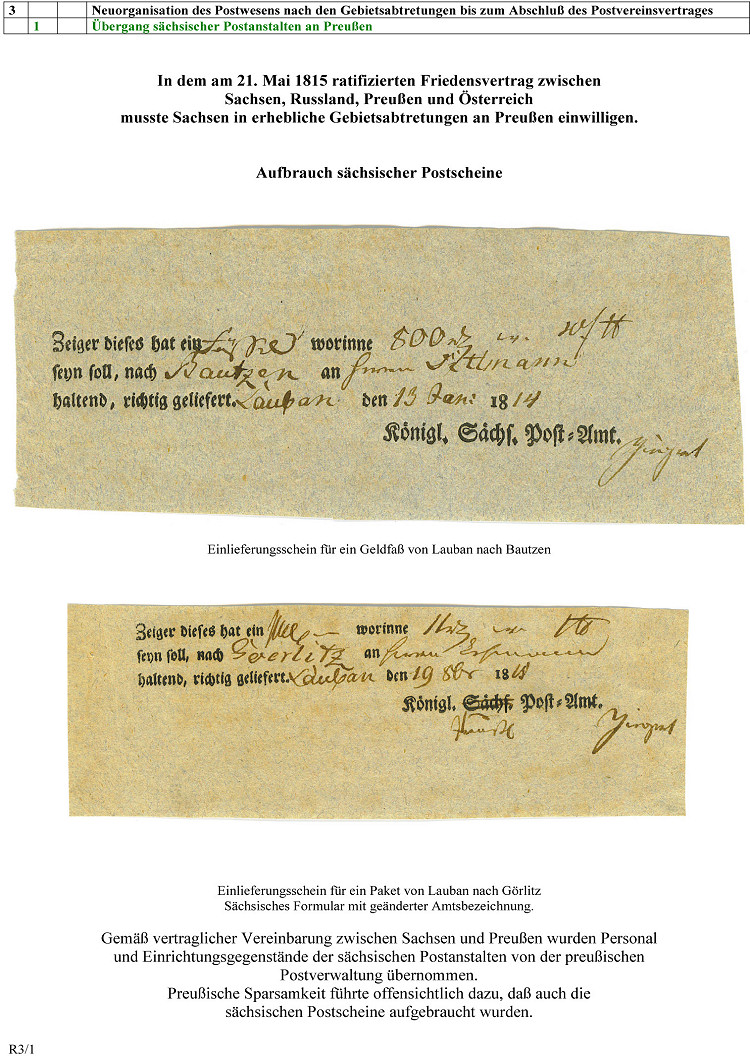 3 Neuorganisation des Postwesens nach den Gebietsabtretungen bis zum Abschluß des Postvereinsvertrages
1 Übergang sächsischer Postanstalten an Preußen
In dem am 21. Mai 1815 ratifizierten Friedensvertrag zwischen
Sachsen, Russland, Preußen und Österreich
musste Sachsen in erhebliche Gebietsabtretungen an Preußen einwilligen.
Aufbrauch sächsischer Postscheine
Zeiger dieses hat ein worinne 800
seyn soll, nach Bautzen an Herrn
haltend, richtig geliefert. Lauban den 13 Jan: 1814
Königl. Sächs. Post-Amt.
Einlieferungsschein für ein Geldfaß von Lauban nach Bautzen
Zeiger dieses hat ein worinne
seyn soll, nach Goerlitz an Herrn
haltend, richtig geliefert. Lauban den 19 8br 18
Königl. Sächs. Post-Amt.
Einlieferungsschein für ein Paket von Lauban nach Görlitz
Sächsisches Formular mit geänderter Amtsbezeichnung.
Gemäß vertraglicher Vereinbarung zwischen Sachsen und Preußen wurden Personal
und Einrichtungsgegenstände der sächsischen Postanstalten von der preußischen
Postverwaltung übernommen.
Preußische Sparsamkeit führte offensichtlich dazu, daß auch die
sächsischen Postscheine aufgebraucht wurden.
R3/1